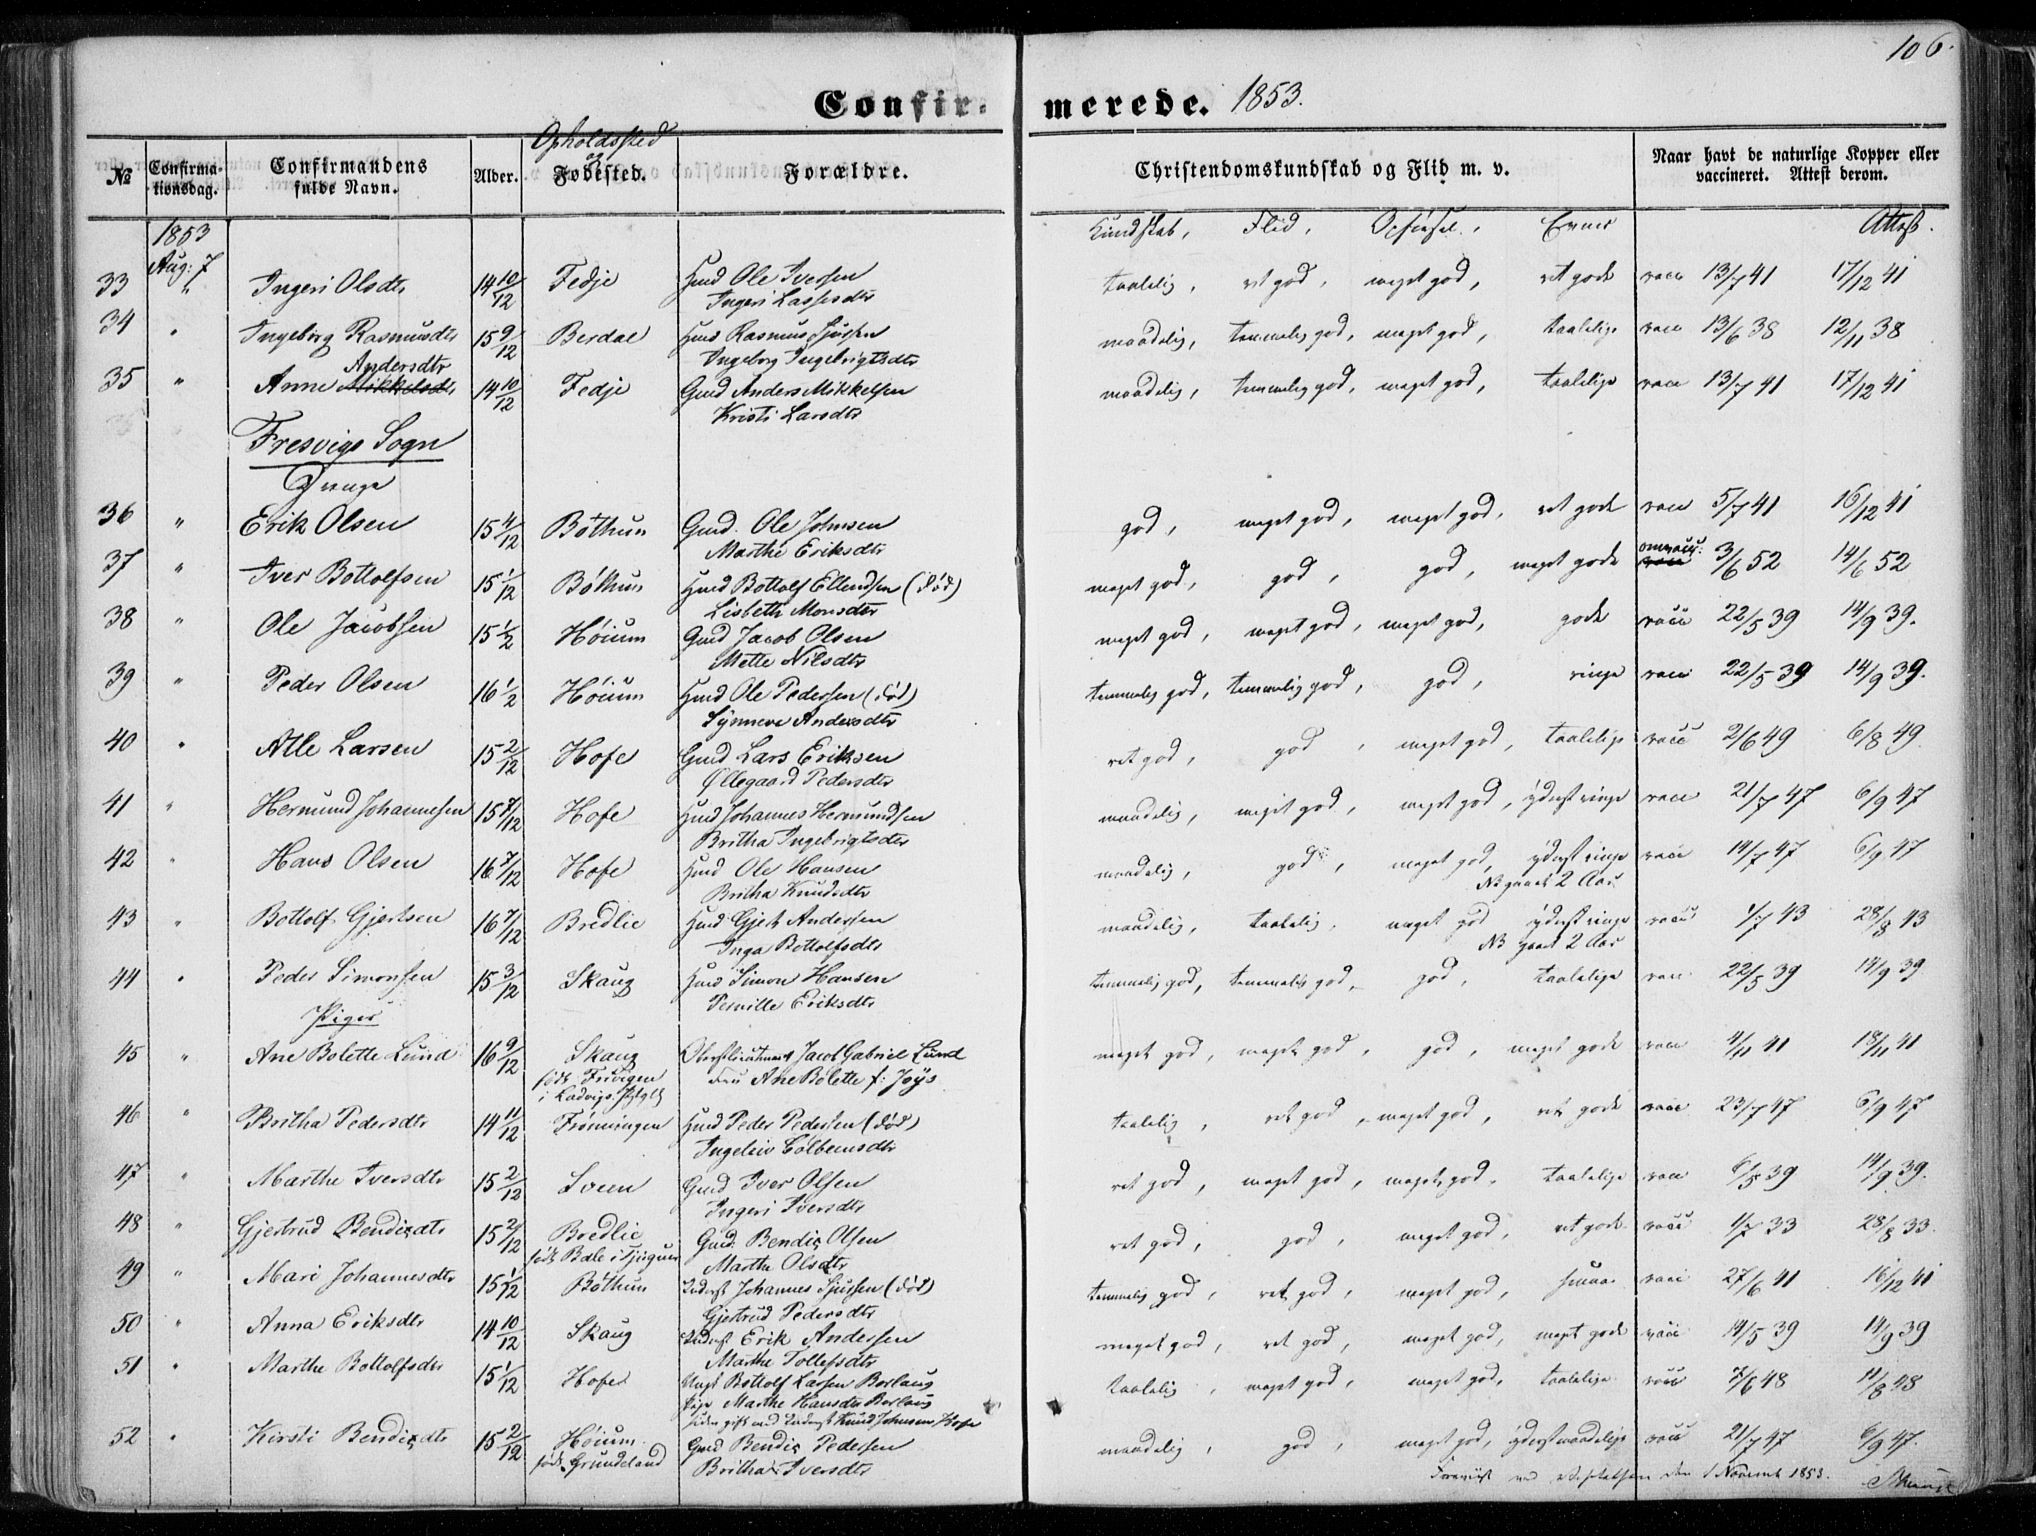 106.
Confirmerede. 1853.
№ Confirmationsdag. Confirmandens fulde Navn. Alder. Opholdssted og Fødested. Forældre. Christendomskundskab og Flid m. v. Naar havt de naturlige Kopper eller vaccineret. Attest derom.
1853 Kundskab, Flid, Opførsel, Evner Attest.
Aug: 7
33 " Ingeri Olsdtr 14 10/12 Fedje Huusmd Ole Iversen taalelig, ret god, meget god, ret gode vacc 13/7 41 17/12 41
Ingeri Lassesdtr
34 " Ingeborg Rasmusdtr 15 9/12 Berdal Rasmus Sjursen maadelig, temmelig god, meget god, taalelige vacc 13/6 38 12/11 38
Ingeborg Ingebrigtsdtr
Andersdtr
35 " Anne Mikkelsdtr 14 10/12 Fedje Gmd Anders Mikkelsen maadelig, temmelig god, meget god, taalelige vacc 13/7 41 17/12 41
Kristi Larsdtr
Fresvigs Sogn
Drenge
36 " Erik Olsen 15 4/12 Bøthun Gmd. Ole Johnsen god, meget god, meget god, ret gode vacc 5/7 41 16/12 41
Marthe Eriksdtr
37 " Iver Bottolfsen 15 1/12 Bøthun Bottolf Ellendsen (død) meget god, god, god, meget gode omvacc: 3/6 52 14/6 52
Lisbeth Monsdtr
38 " Ole Jacobsen 15 1/2 Høium Gmd Jacob Olsen meget god, meget god, meget god, gode vacc 22/5 39 14/9 39.
Mette Nilsdtr
39 " Peder Olsen 16 1/2 Høium Ole Pedersen (død) temmelig god, temmelig god, god, ringe vacc 22/5 39 14/9 39.
Synneve Andersdtr
40 " Atle Larsen 15 2/12 Hofe Gmd Lars Eriksen ret god, god, meget god, taalelige vacc 2/6 49 6/8 49.
Øllegaard Pedersdtr
41 " Hermund Johannesen 15 7/12 Hofe Johannes Hermundsen maadelig, meget god, meget god, yderst ringe vacc 21/7 47 6/9 47
Britha Ingebrigtsdtr
42 " Hans Olsen 16 7/12 Hofe Ole Hansen maadelig, god, meget god, yderst ringe vacc 14/7 47 6/9 47
Britha Knudsdtr NB gaaet 2 Aar
43 " Bottolf Gjertsen 16 7/12 Bredlie Gjert Andersen maadelig, taalelig, meget god yderst ringe vacc 1/7 43 28/8 43
Inga Bottolfsdtr NB gaaet 2 Aar
44 " Peder Simonsen 15 3/12 Skaug Simon Hansen temmelig god, temmelig god, god, taalelige vacc 22/5 39 14/9 39
Pernille Eriksdtr
Piger
45 " Ane Bolette Lund 16 9/12 Skaug Oberstlieutenant Jacob Gabriel Lund meget god, meget god, god, meget gode vacc 4/11 41 18/11 41
født Fuvigen Fru Ane Bolette f: Joys
i Ladvigs Pstgld
46 " Britha Pedersdtr 14 11/12 Frønningen Peder Pedersen (død) taalelig, ret god, meget god, ret gode vacc 23/7 47 6/9 47
Ingeleiv Colbeensdtr
47 " Marthe Iversdtr 15 2/12 Sveen Gmd Iver Olsen ret god, meget god, meget god, taalelige vacc 6/5 39 14/9 39.
Ingeri Iversdtr
48 " Gjertrud Bendixdtr 15 2/12 Bredlie Gmd: Bendix Olsen ret god, god, meget god, ret gode vacc 1/7 33 28/8 33.
Marthe Olsdtr
49 " Mari Johannesdtr 15 1/12 Bøthun Inderst Johannes Sjursen (død) temmelig god, ret god, meget god, smaae vacc 27/6 41 16/12 41
Gjertrud Pedersdtr
50 " Anna Eriksdtr 14 10/12 Skaug Inderst Erik Andersen meget god, ret god, meget god, meget gode vacc 14/5 39 14/9 39
Marthe Tollefsdtr
51 " Marthe Bottolfsdtr 15 1/12 Hofe Ungk Bottolf Larsen Borlaug taalelig, meget god, meget god, taalelige vacc 7/6 48 11/8 48
Pige Marthe Hansdtr Borlaug
siden gift med Inderst Knud Johnsen Hofe
52 " Kirsti Bendixdtr 15 2/12 Høium Gmd Bendix Pedersen maadelig, god, meget god, yderst maadelige vacc 21/7 47 6/9 47.
født Grundeland Britha Iversdtr
Foreviist ved Visitatsen den 1 Novemb 1853.